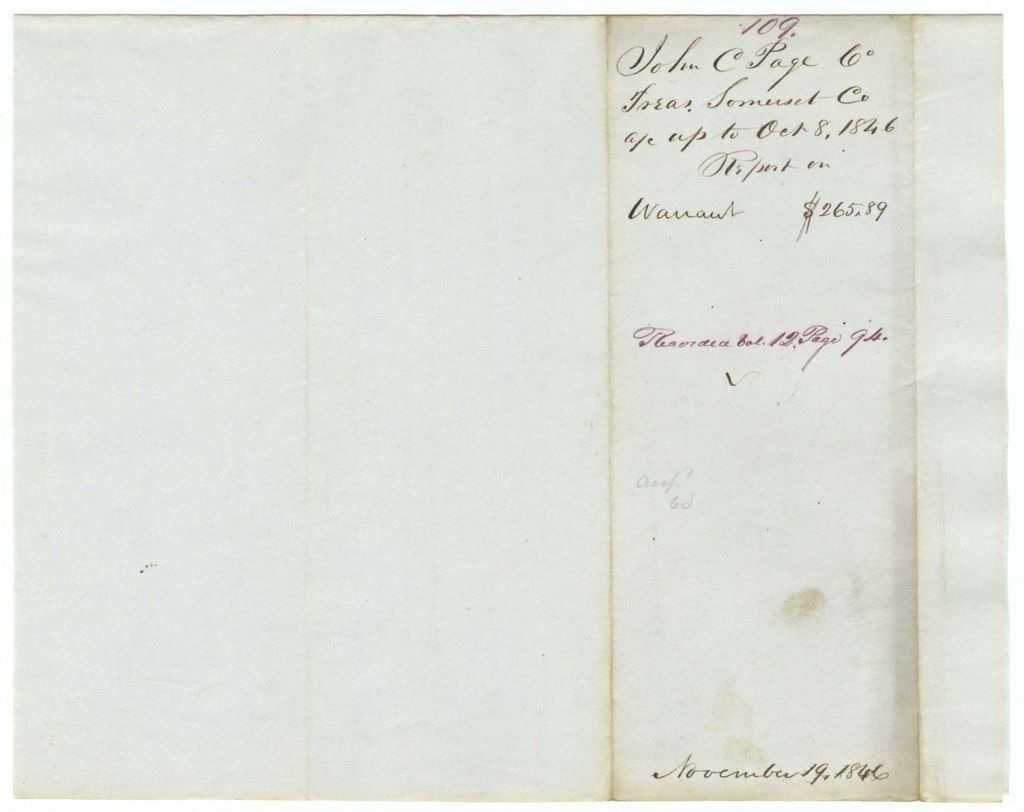 109.
John C Page Co
Treas. Somerset Co
a/c up to Oct 8, 1846
Report on
Warrant $265.89
Recorded Vol. 12. Page 94.
November 19, 1846